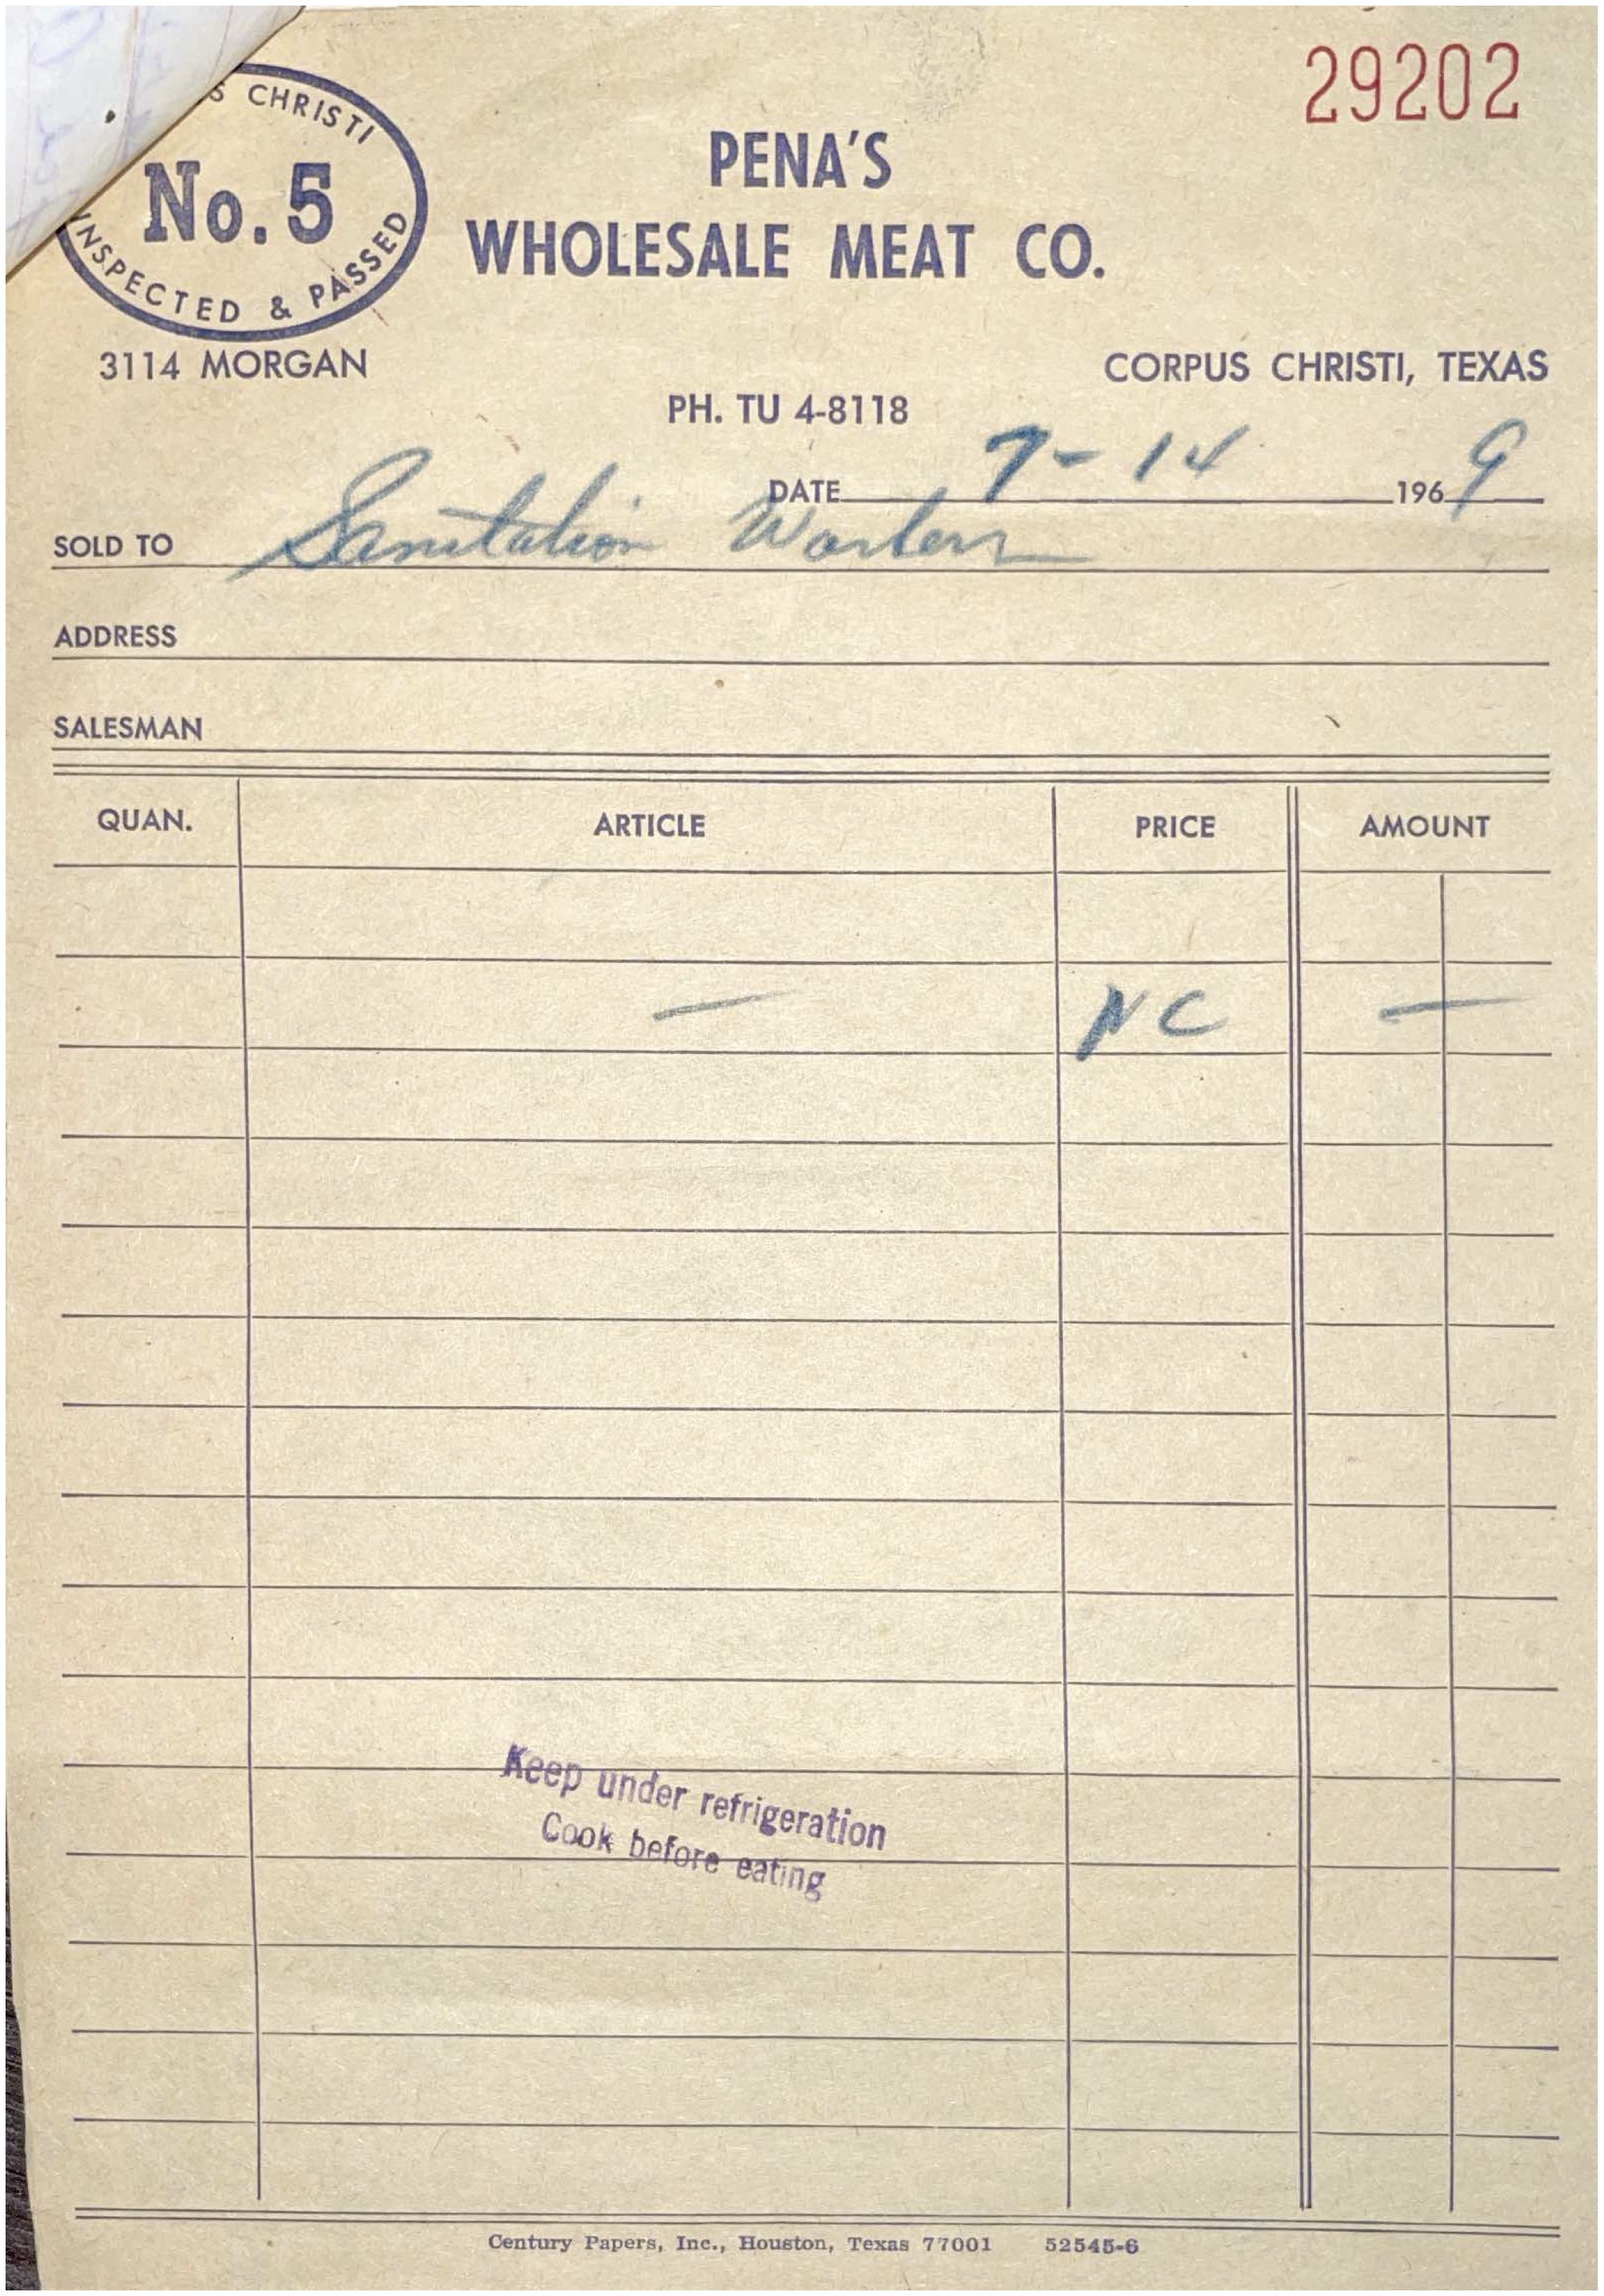 29202
S CHRISTI
No. 5
INSPECTED & PASSED
PENA'S
WHOLESALE MEAT CO.
3114 MORGAN
CORPUS CHRISTI, TEXAS
PH. TU 4-8118
DATE 7-14 1969
SOLD TO Sanitation Workers
ADDRESS
SALESMAN
QUAN. ARTICLE PRICE AMOUNT
— NC —
Keep under refrigeration
Cook before eating
Century Papers, Inc., Houston, Texas 77001 52545-6